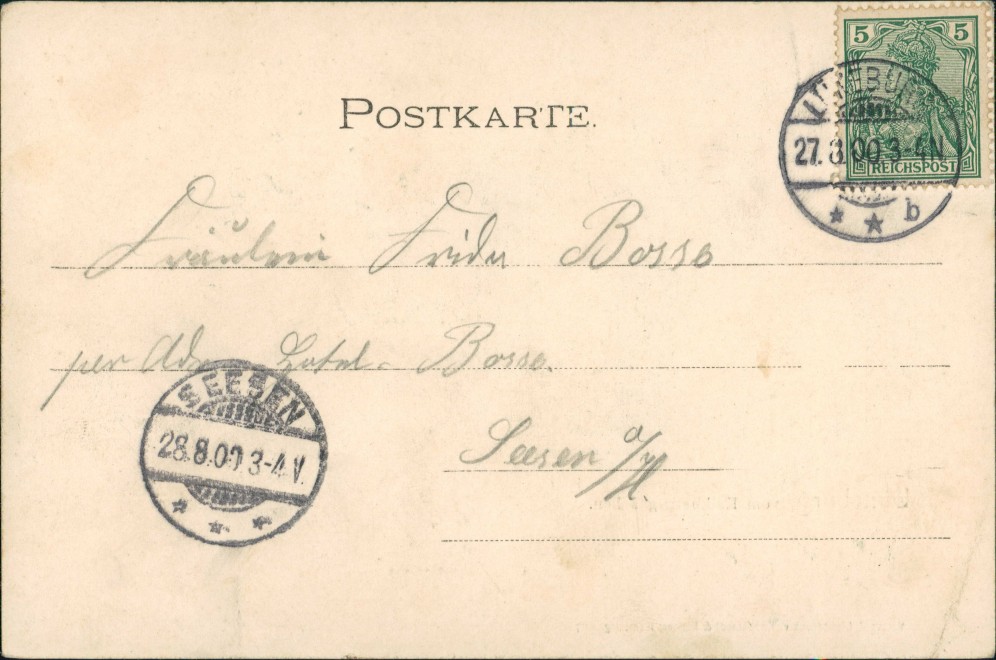 POSTKARTE.
5 5
REICHSPOST
27.8.00 3-4N.
b
Fräulein Frida Bosse
per Adr. Hotel Bosse.
Seesen a/H.
SEESEN
28.8.00 3-4 V.